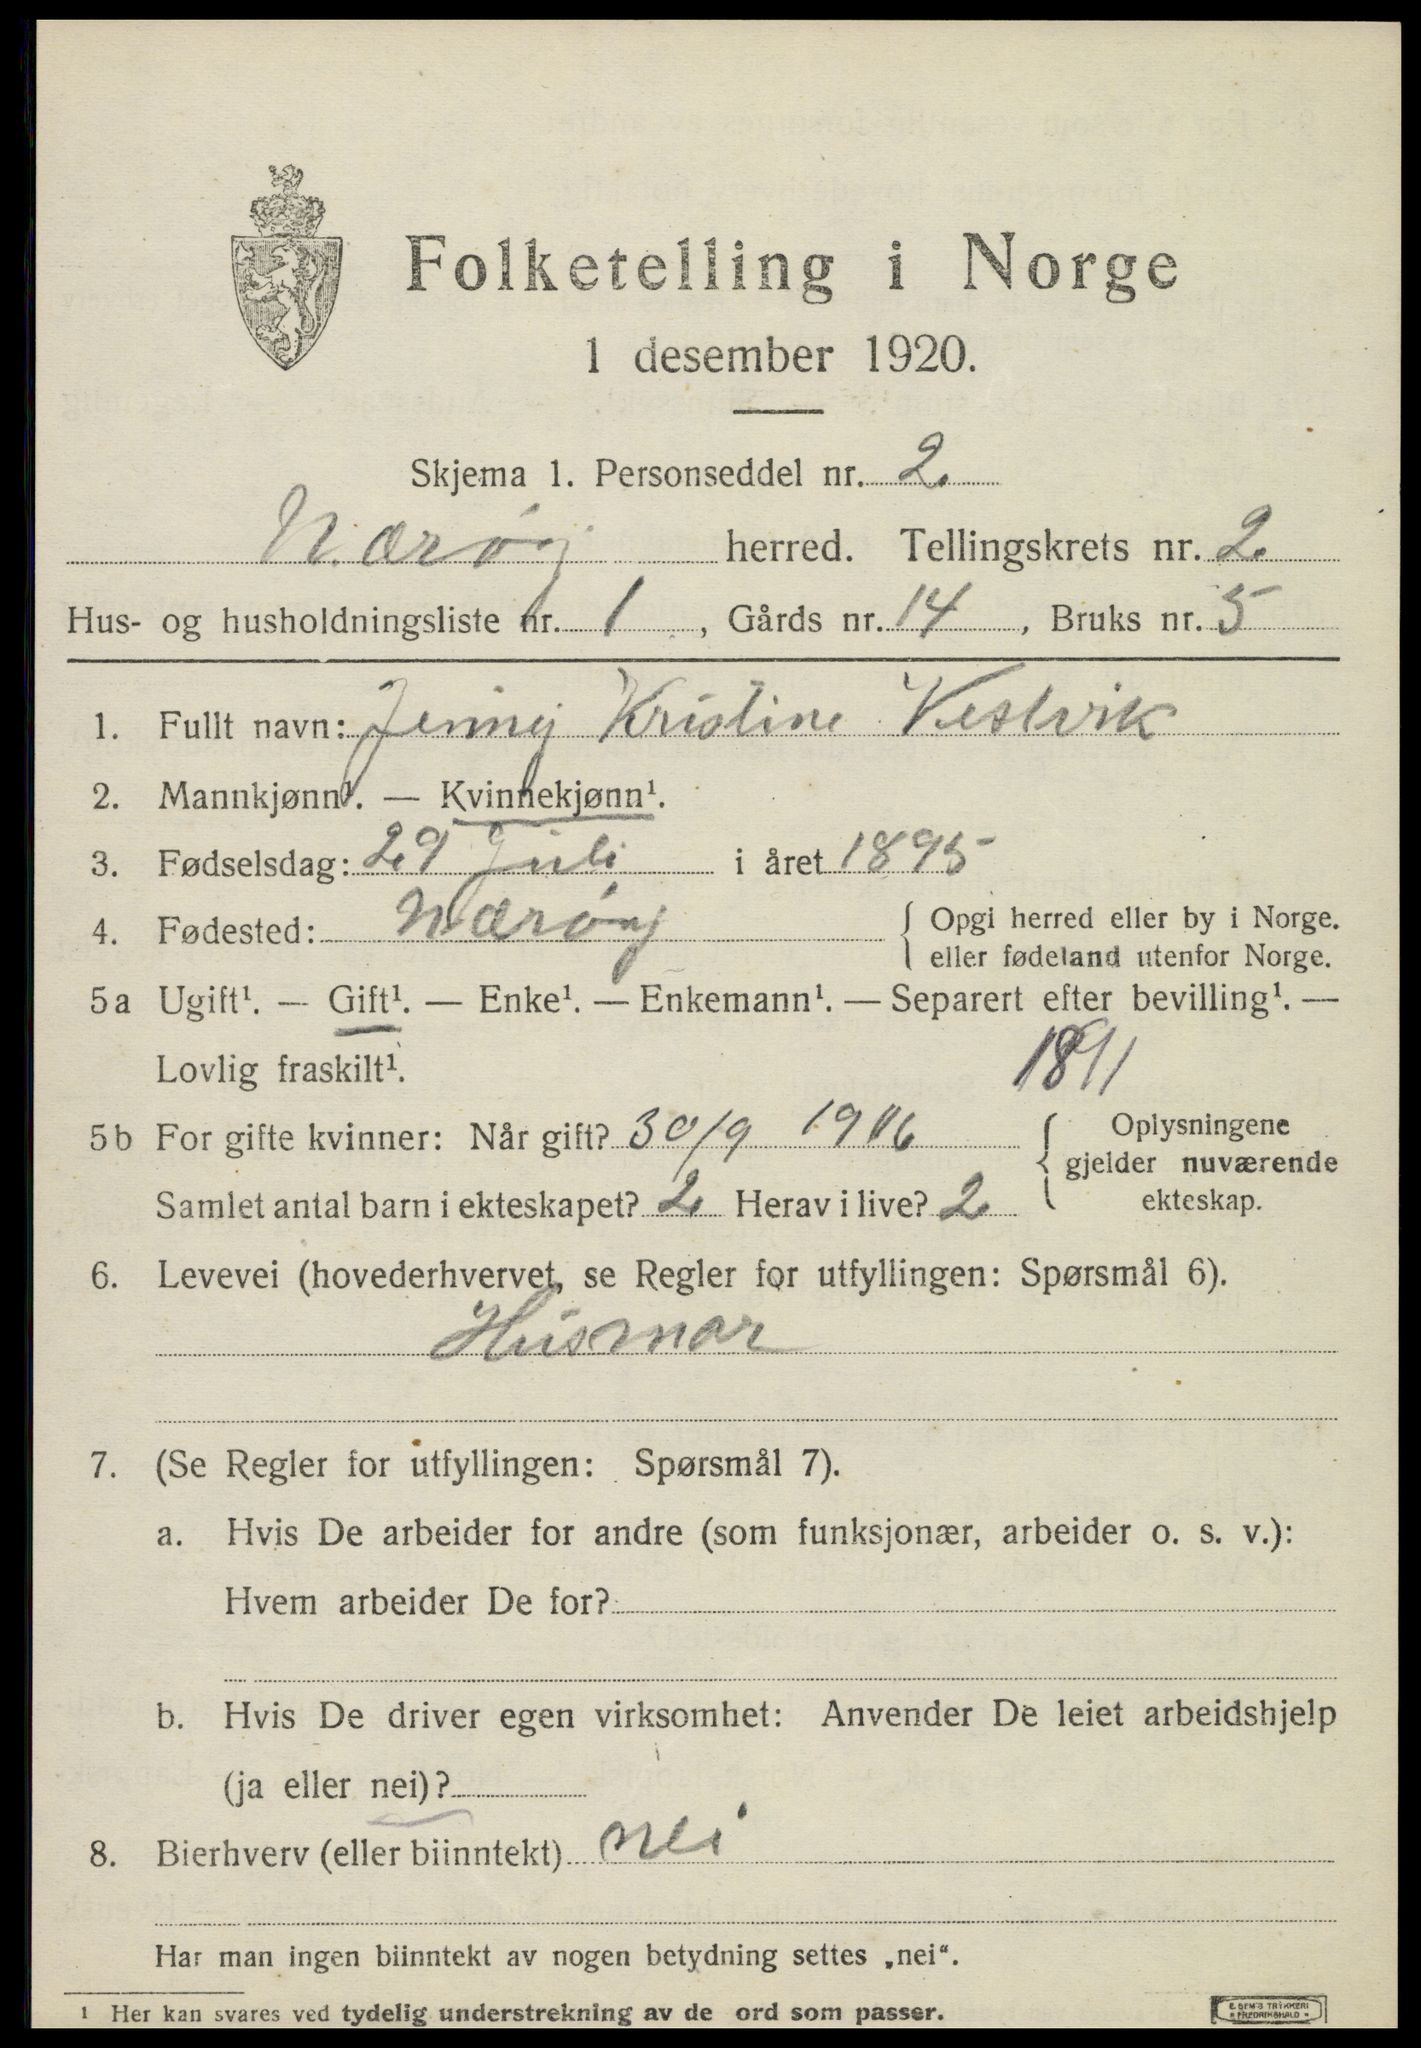 Folketelling i Norge
1 desember 1920.
Skjema 1. Personseddel nr. 2
Nærøy herred. Tellingskrets nr. 2
Hus- og husholdningsliste nr. 1, Gårds nr. 14, Bruks nr. 5
1. Fullt navn: Jenny Kristine Vestvik
2. Mannkjønn¹. — Kvinnekjønn¹.
3. Fødselsdag: 29 Juli i året 1895
4. Fødested: Nærøy { Opgi herred eller by i Norge.
eller fødeland utenfor Norge.
5a Ugift¹. — Gift¹. — Enke¹. — Enkemann¹. — Separert efter bevilling¹. —
Lovlig fraskilt¹.
1891
5b For gifte kvinner: Når gift? 30/9 1916 { Oplysningene
gjelder nuværende
Samlet antal barn i ekteskapet? 2 Herav i live? 2 ekteskap.
6. Levevei (hovederhvervet, se Regler for utfyllingen: Spørsmål 6).
Husmor
7. (Se Regler for utfyllingen: Spørsmål 7).
a. Hvis De arbeider for andre (som funksjonær, arbeider o. s. v.):
Hvem arbeider De for?
b. Hvis De driver egen virksomhet: Anvender De leiet arbeidshjelp
(ja eller nei)?
8. Bierhverv (eller biinntekt) nei
Har man ingen biinntekt av nogen betydning settes „nei“.
¹ Her kan svares ved tydelig understrekning av de ord som passer.
E. SEM'S TRYKKERI
FREDRIKSHALD